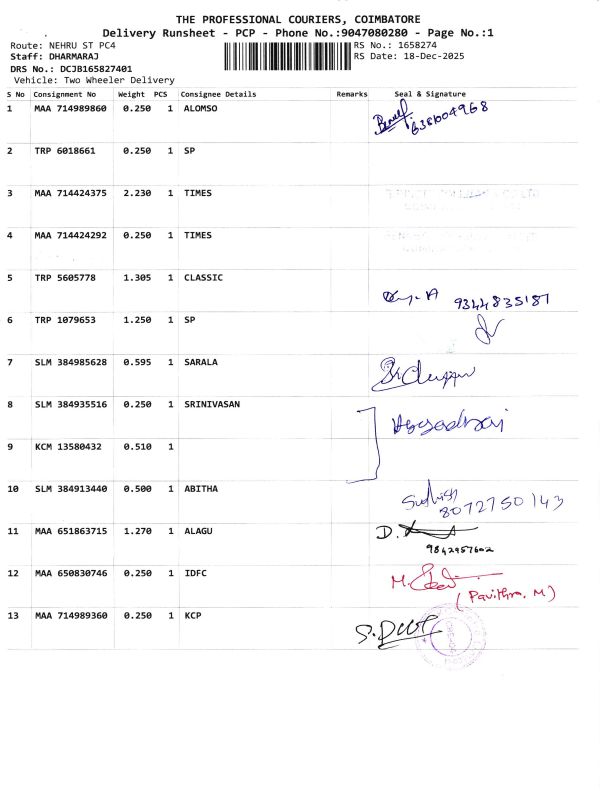 THE PROFESSIONAL COURIERS, COIMBATORE
Delivery Runsheet - PCP - Phone No.:9047080280 - Page No.:1
Route: NEHRU ST PC4 RS No.: 1658274
Staff: DHARMARAJ RS Date: 18-Dec-2025
DRS No.: DCJB165827401
Vehicle: Two Wheeler Delivery
S No Consignment No Weight PCS Consignee Details Remarks Seal & Signature
1 MAA 714989860 0.250 1 ALOMSO
2 TRP 6018661 0.250 1 SP
3 MAA 714424375 2.230 1 TIMES
4 MAA 714424292 0.250 1 TIMES
5 TRP 5605778 1.305 1 CLASSIC 9344835187
6 TRP 1079653 1.250 1 SP
7 SLM 384985628 0.595 1 SARALA
8 SLM 384935516 0.250 1 SRINIVASAN
9 KCM 13580432 0.510 1
10 SLM 384913440 0.500 1 ABITHA
8072750143
11 MAA 651863715 1.270 1 ALAGU D.
9842957602
12 MAA 650830746 0.250 1 IDFC M.
(Pavithra. M)
13 MAA 714989360 0.250 1 KCP